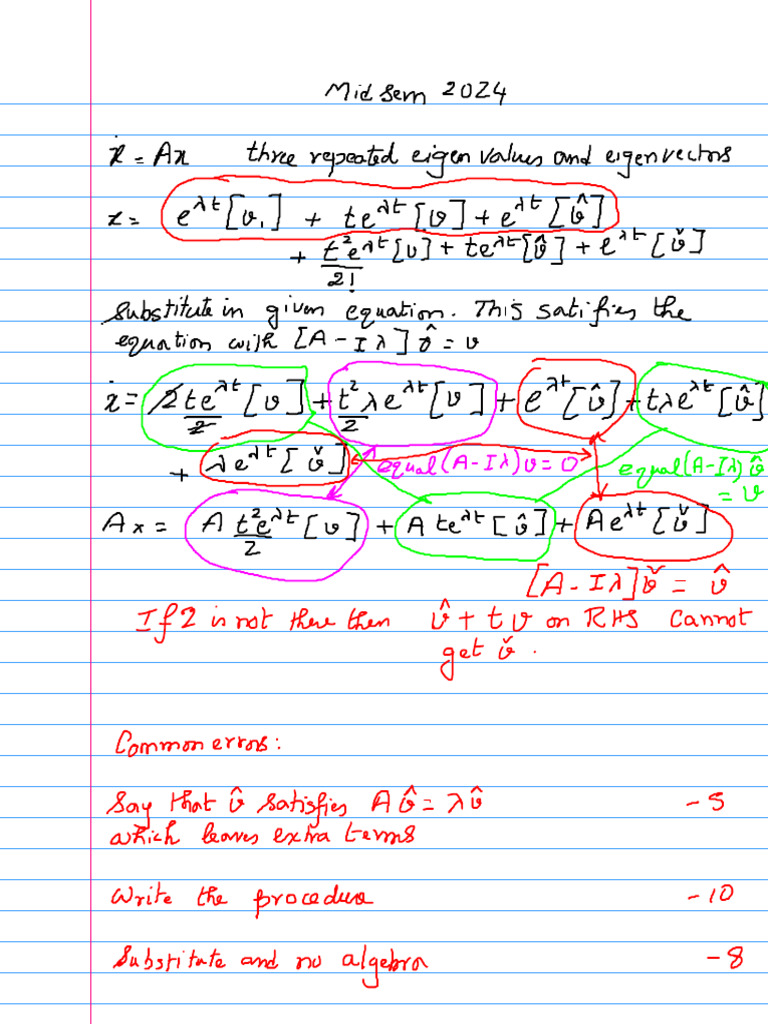 Mid sem 2024
ẋ = Ax three repeated eigen values and eigenvectors
x = e^{λt}[v₁] + te^{λt}[v] + e^{λt}[v̂]
+ t²e^{λt}/2! [v] + te^{λt}[v̂] + e^{λt}[v̌]
Substitute in given equation. This satisfies the
equation with [A - Iλ] v̂ = v
ẋ = 2te^{λt}/2 [v] + t²/2 λe^{λt}[v] + e^{λt}[v̂] + tλe^{λt}[v̂]
+ λe^{λt}[v̌] equal (A-Iλ)v = 0 equal (A-Iλ)v̂ = v
Ax = A t²e^{λt}/2 [v] + A te^{λt}[v̂] + Ae^{λt}[v̌]
[A - Iλ]v̌ = v̂
If 2 is not there then v̂ + tv on RHS cannot
get v̌.
Common errors:
Say that v̂ satisfies Av̂ = λv̂ -5
which leaves extra terms
Write the procedure -10
Substitute and no algebra -8